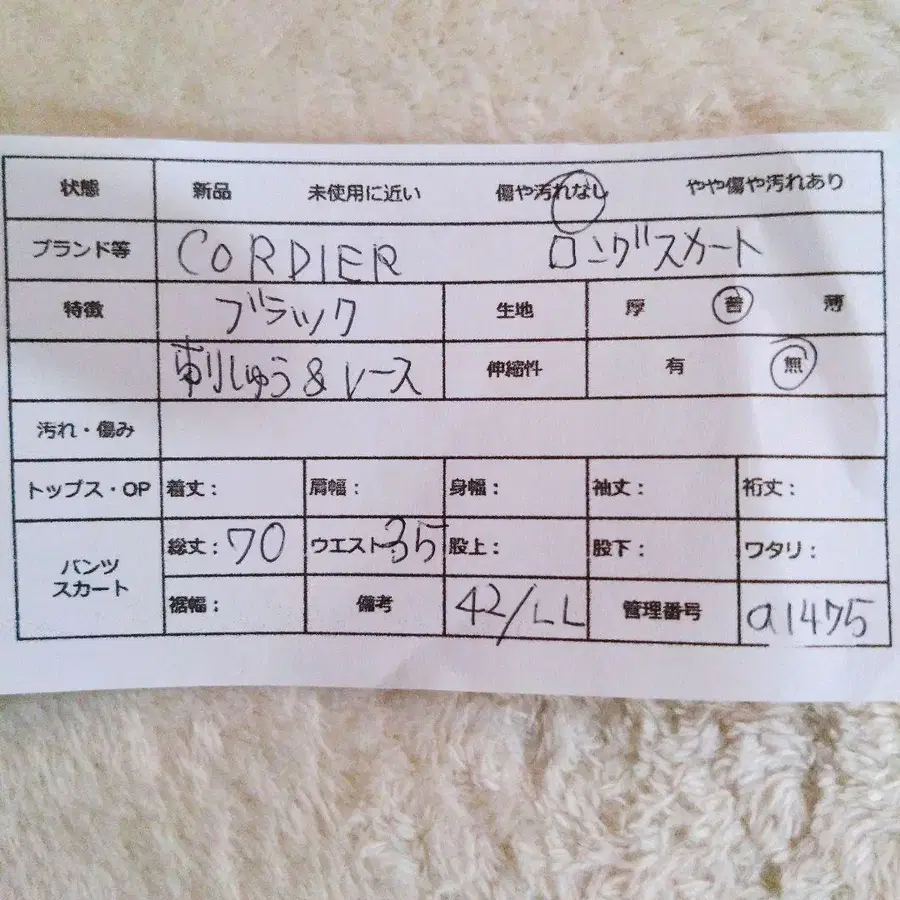 状態 新品 未使用に近い 傷や汚れなし やや傷や汚れあり
ブランド等 CORDIER ロングスカート
特徴 ブラック 生地 厚 普 薄
刺しゅう&レース 伸縮性 有 無
汚れ・傷み
トップス・OP 着丈: 肩幅: 身幅: 袖丈: 裄丈:
パンツ スカート 総丈:70 ウエスト:35 股上: 股下: ワタリ:
裾幅: 備考 42/LL 管理番号 a1475